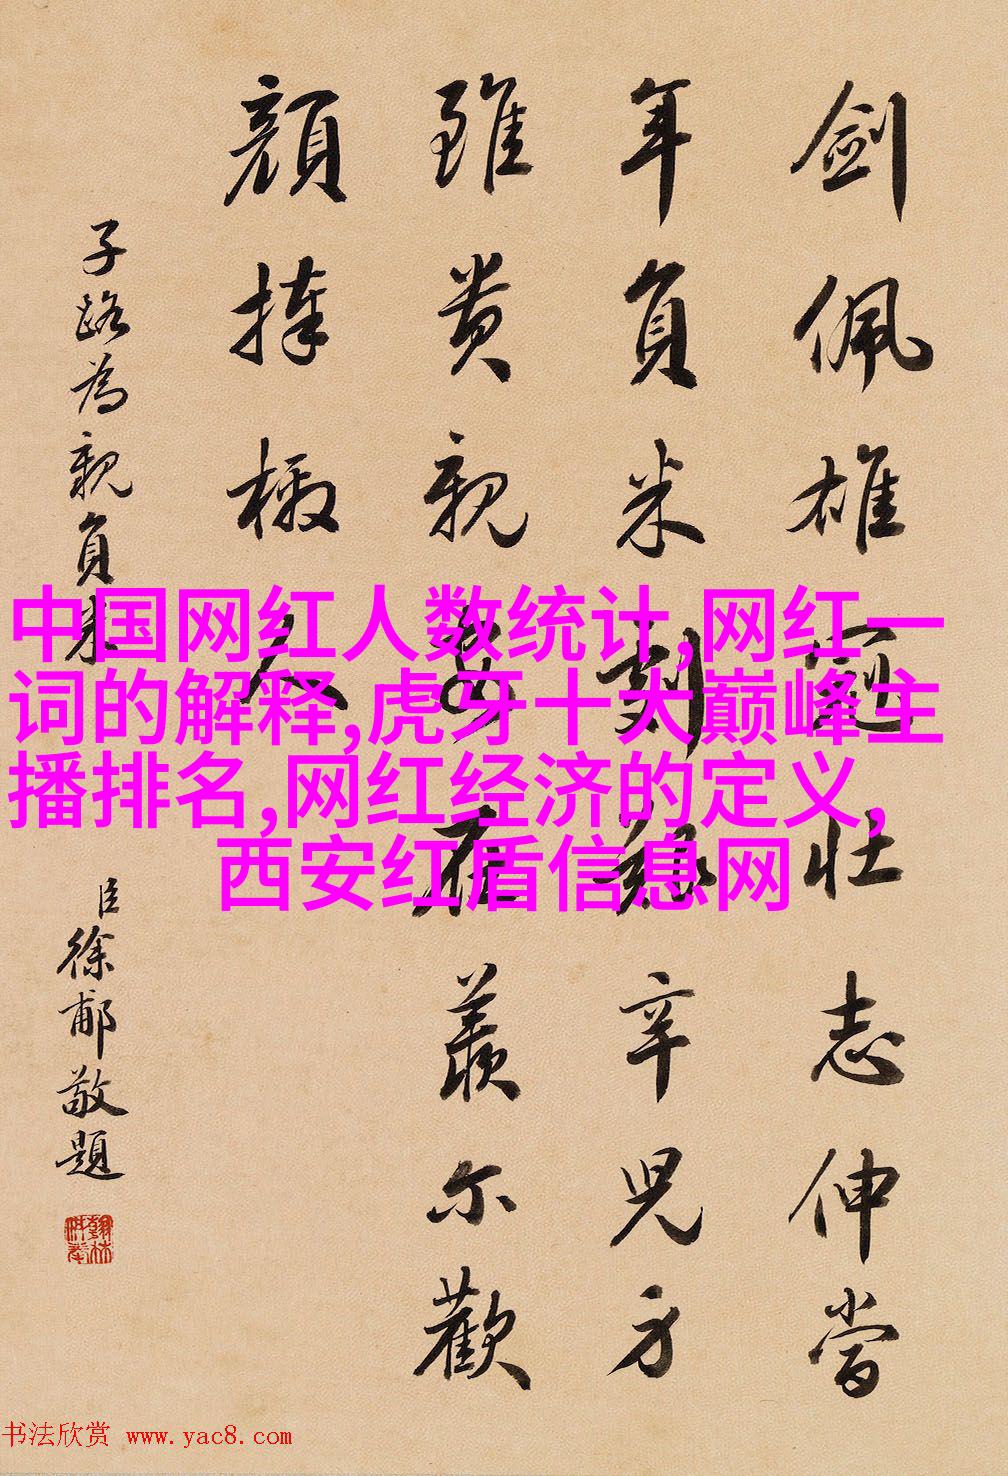 剑佩雄冠壮志伸当
年负米刻艱辛児方
虽贵親安在羨尓歡
顔捧檄人
子路為親負米
臣徐郙敬題
中国网红人数统计,网红一
词的解释,虎牙十大巅峰主
播排名,网红经济的定义,
西安红盾信息网
书法欣赏 www.yac8.com